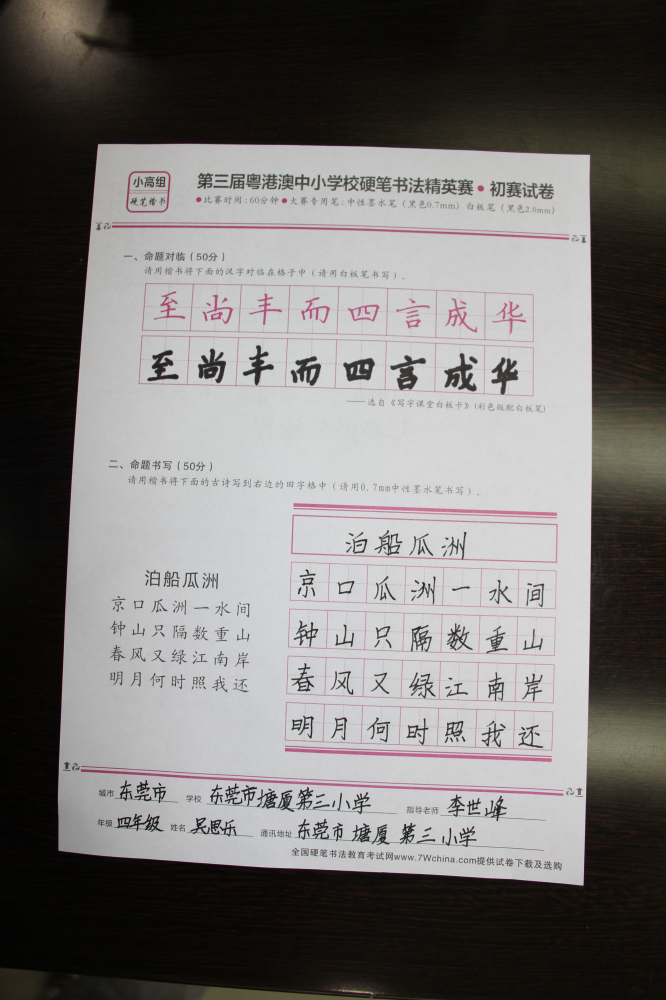 小高组
硬笔楷书
第三届粤港澳中小学校硬笔书法精英赛·初赛试卷
●比赛时间:60分钟●大赛专用笔:中性墨水笔(黑色0.7mm)白板笔(黑色2.0mm)
一、命题对临(50分)
请用楷书将下面的汉字对临在格子中(请用白板笔书写)。
至尚丰而四言成华
至尚丰而四言成华
——选自《写字课堂白板卡》(彩色版配白板笔)
二、命题书写(50分)
请用楷书将下面的古诗写到右边的田字格中(请用0.7mm中性墨水笔书写)。
泊船瓜洲
京口瓜洲一水间
钟山只隔数重山
春风又绿江南岸
明月何时照我还
泊船瓜洲
京口瓜洲一水间
钟山只隔数重山
春风又绿江南岸
明月何时照我还
城市 东莞市 学校 东莞市塘厦第三小学 指导老师 李世峰
年级 四年级 姓名 吴思乐 通讯地址 东莞市塘厦第三小学
全国硬笔书法教育考试网www.7Wchina.com提供试卷下载及选购